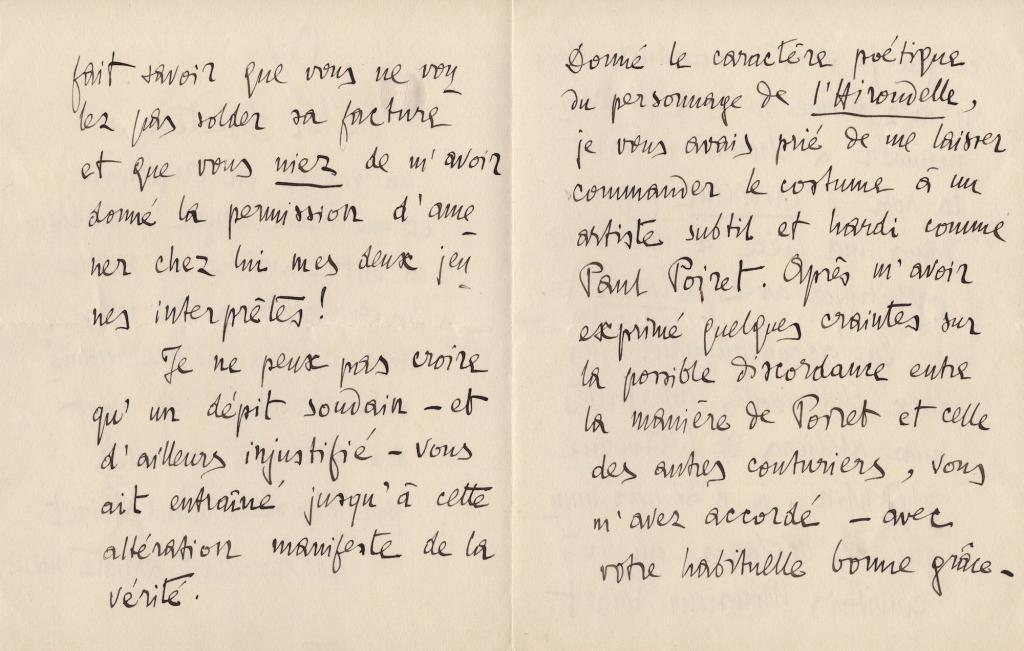 fait savoir que vous ne vou
lez pas solder sa facture
et que vous niez de m'avoir
donné la permission d'ame
ner chez lui mes deux jeu
nes interprêtes !
Je ne peux pas croire
qu'un dépit soudain – et
d'ailleurs injustifié – vous
ait entraîné jusqu'à cette
altération manifeste de la
vérité.
Donné le caractère poétique
du personnage de l'Hirondelle,
je vous avais prié de me laisser
commander le costume à un
artiste subtil et hardi comme
Paul Poiret. Après m'avoir
exprimé quelques craintes sur
la possible discordance entre
la manière de Poiret et celle
des autres couturiers, vous
m'avez accordé – avec
votre habituelle bonne grâce –